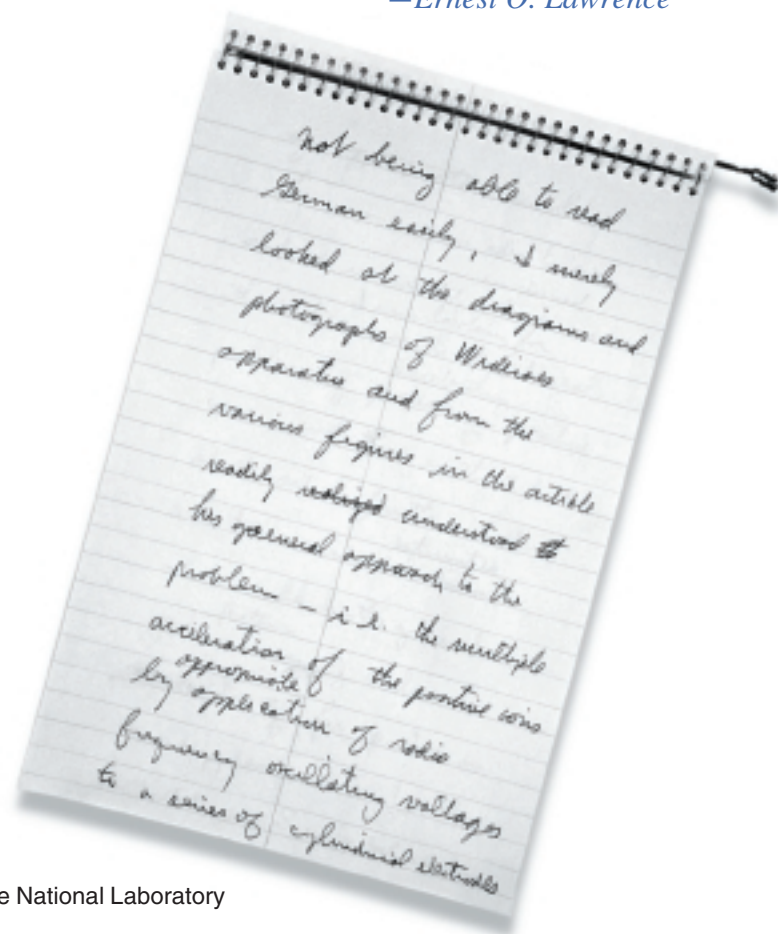 —Ernest O. Lawrence
not being able to read
German easily, I merely
looked at the diagrams and
photographs of Wideroes
apparatus and from the
various figures in the article
readily realized understood
his general approach to the
problem – i.e. the multiple
acceleration of the positive ions
appropriate
by application of radio
frequency oscillating voltages
to a series of cylindrical electrodes
e National Laboratory